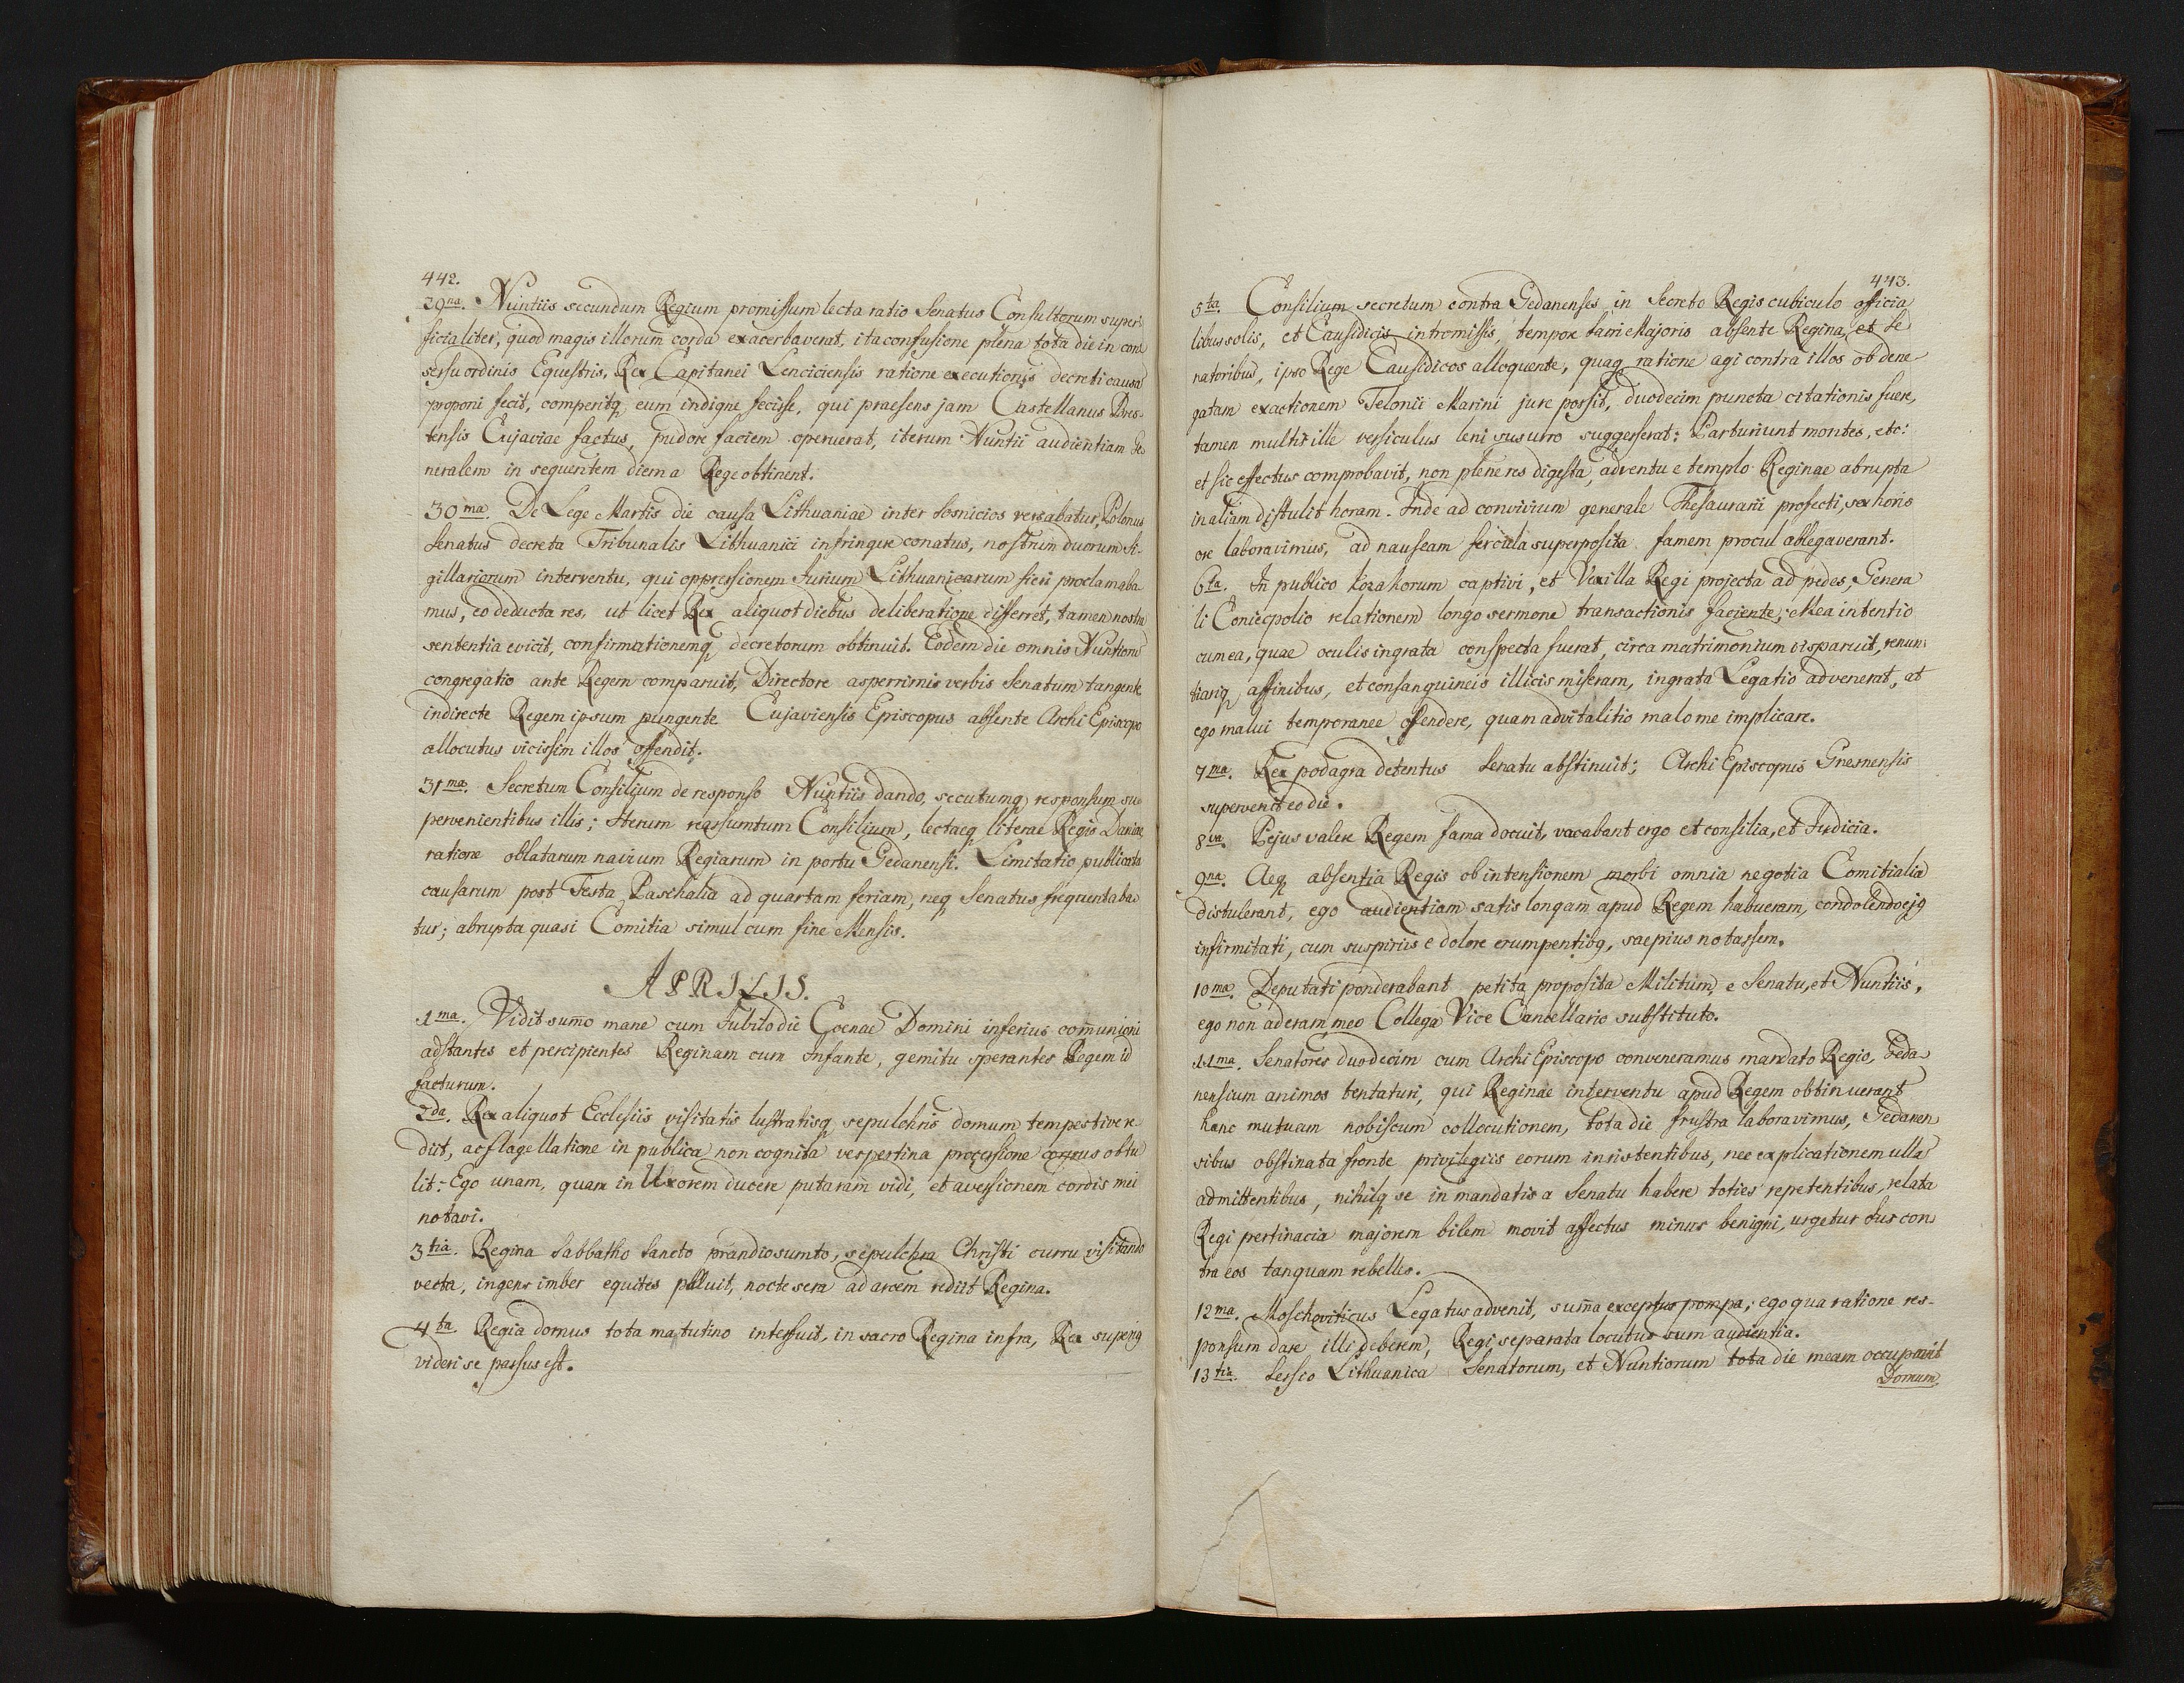 442.
29na. Nuntiis secundum Regium promissum lecta ratio Senatus Consultorum superi
ficialiter, quod magis illorum corda exacerbaverat, ita confusione plena tota die in con
sessu ordinis Equestris, Rex Capitanei Lenciciensis ratione executionis decreti causa
proponi fecit, comperitq eum indigne fecisse, qui praesens jam Castellanus Bres-
tensis Cujaviae factus, pudore faciem operuerat, iterum Nuntii audientiam Ge
neralem in sequentem diem a Rege obtinent.
30ma. De Lege Martis die causa Lithuaniae inter Sosnicios versabatur, Polonus
Senatus decreta Tribunalis Lithuanici infringere conatus, nostrum duorum Si-
gillariorum interventu, qui oppressionem Jurium Lithuanicarum fieri proclamaba
mus, eo deducta res, ut licet Rex aliquot diebus deliberatione differret, tamen nostra
sententia evicit, confirmationemq decretorum obtinuit. Eodem die omnis Nuntiorum
congregatio ante Regem comparuit, Directore asperrimis verbis Senatum tangente
indirecte Regem ipsum pungente Cujaviensis Episcopus absente Archi Episcopo
allocutus vicissim illos offendit.
31ma. Secretum Consilium de responso Nuntiis dando, secutumq responsum su
pervenientibus illis; Iterum reassumtum Consilium, lectaeq literae Regis Daniae
ratione oblatarum navium Regiarum in portu Gedanensi. Limitatio publicata
causarum post Festa Paschalia ad quartam feriam, neq Senatus frequentaba
tur; abrupta quasi Comitia simul cum fine Mensis.
APRILIS.
1ma. Vidit sumo mane cum Jubilo die Coenae Domini inferius comunioni
adstantes et percipientes Reginam cum Infante, gemitu sperantes Regem id
facturum.
2da. Rex aliquot Ecclesiis visitatis lustratisq sepulchris domum tempestive re
diit, ac flagellatione in publica non cognita vespertina processione cursus obtu
lit: Ego unam, quam in Uxorem ducere putaram vidi, et aversionem cordis mei
notavi.
3tia. Regina Sabbatho Sancto prandio sumto, sepulchra Christi curru visitando
vecta, ingens imber equites polluit, nocte sera ad arcem rediit Regina.
4ta Regia domus tota matutino interfuit, in sacro Regina infra, Rex superiq
videri se passus est.
443.
5ta. Consilium secretum contra Gedanenses in Secreto Regis cubiculo officia
libus solis, et Causidicis intromissis, tempore Sacri Majoris absente Regina, et Se
natoribus, ipso Rege Causidicos alloquente, quaq ratione agi contra illos ob dene
gatam exactionem Telonii Marini jure possit, duodecim puncta citationis fuere,
tamen multis ille versiculus leni susurro suggesserat: Parturiunt montes, etc:
et sic effectus comprobavit, non plene res digesta, adventu e templo Reginae abrupta
in aliam distulit horam. Inde ad convivium generale Thesaurarii profecti, sex horis
ore laboravimus, ad nauseam fercula superposita famem procul ablegaverant.
6ta. In publico kozakorum captivi, et Vexilla Regi projecta ad pedes, Genera
li Coniecpolio relationem longo sermone transactionis faciente; Mea intentio
cum ea, quae oculis ingrata conspecta fuerat, circa matrimonium disparuit, renun
tiariq affinibus, et consanguineis illicis miseram, ingrata Legatio advenerat, at
ego malui temporanee offendere, quam ad vitalitio malo me implicare.
7ma. Rex podagra detentus Senatu abstinuit; Archi Episcopus Gnesnensis
supervenit eo die.
8va. Pejus valere Regem fama docuit, vacabant ergo et consilia, et Judicia.
9na. Aeq absentia Regis ob intensionem morbi omnia negotia Comitialia
distulerant, ego audientiam satis longam apud Regem habueram, condolendo ejq
infirmitati, cum suspiriis e dolore erumpentibq, saepius notassem.
10ma. Deputati ponderabant petita proposita Militum, e Senatu, et Nuntiis,
ego non aderam meo Collega Vice Cancellario substituto.
11ma. Senatores duodecim cum Archi Episcopo conveneramus mandato Regio, Geda
nensium animos tentaturi, qui Reginae interventu apud Regem obtinuerant
hanc mutuam nobiscum collocutionem, tota die frustra laboravimus, Gedanen
sibus obstinata fronte privilegiis eorum insistentibus, nec explicationem ullam
admittentibus, nihilq se in mandatis a Senatu habere toties repetentibus, relata
Regi pertinacia majorem bilem movit affectus minus benigni, urgetur Jus con
tra eos tanquam rebelles.
12ma. Moschoviticus Legatus advenit, suma exceptus pompa; ego qua ratione res-
ponsum dare illi deberem, Regi separata locutus sum audientia.
13tia. Sessio Lithuanica Senatorum, et Nuntiorum tota die meam occupavit
Domum